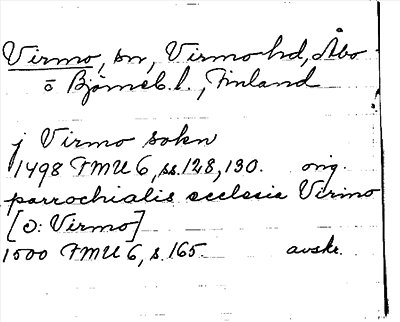 Virmo, sn, Virmo hd, Åbo
o Björneb. l., Finland
j Virmo sokn
1498 FMU 6, ss. 128, 130. orig.
parrochialis ecclesia Virino
[ɔ: Virmo]
1500 FMU 6, s. 165. avskr.